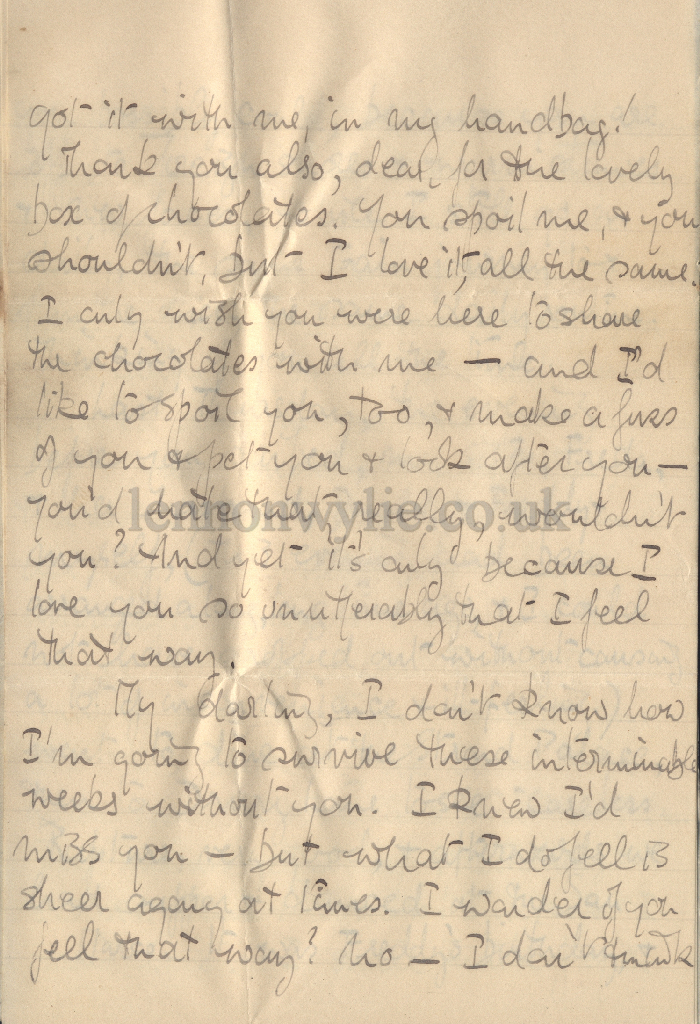 got it with me, in my handbag!
Thank you also, dear, for the lovely
box of chocolates. You spoil me, & you
shouldn't, but I love it, all the same.
I only wish you were here to share
the chocolates with me — and I'd
like to spoil you, too, & make a fuss
of you & pet you & look after you —
you'd hate that, really, wouldn't
lennonwylie.co.uk
you? And yet it's only because I
love you so unutterably that I feel
that way.
My darling, I don't know how
I'm going to survive these interminable
weeks without you. I knew I'd
miss you — but what I do feel is
sheer agony at times. I wonder if you
feel that way? No — I don't think